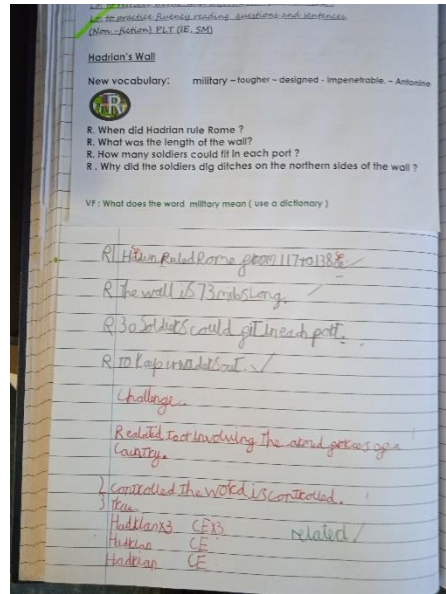 LO to practice fluency reading questions and sentences
(Non-fiction) PLT (IE, SM)
Hadrian's Wall
New vocabulary: military – tougher – designed - impenetrable. – Antonine
R
R. When did Hadrian rule Rome ?
R. What was the length of the wall?
R. How many soldiers could fit in each port ?
R . Why did the soldiers dig ditches on the northern sides of the wall ?
VF : What does the word military mean ( use a dictionary )
R Ruled Rome from 117 to 138
R The wall is 73 miles long.
R 30 Soldiers could fit in each port.
R To keep invaders out.
Challenge.
Realated to or involving The armed forces of a
Country.
2 controlled The word is controlled.
3 True
Hadrian x3 CE x3 related
Hadrian CE
Hadrian CE